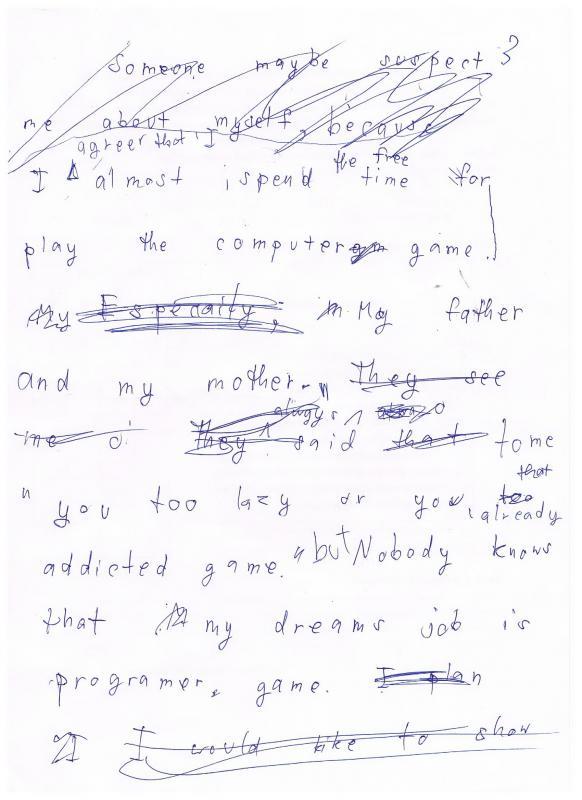 Someone maybe suspect 3
me about myself, because
agreer that I
I almost spend the free time for
play the computer game.
My Especially, My father
and my mother. They see
me They always said that to me
"you too lazy or you that already
addicted game." but Nobody knows
that my dreams job is
programer game. I plan
I would like to show